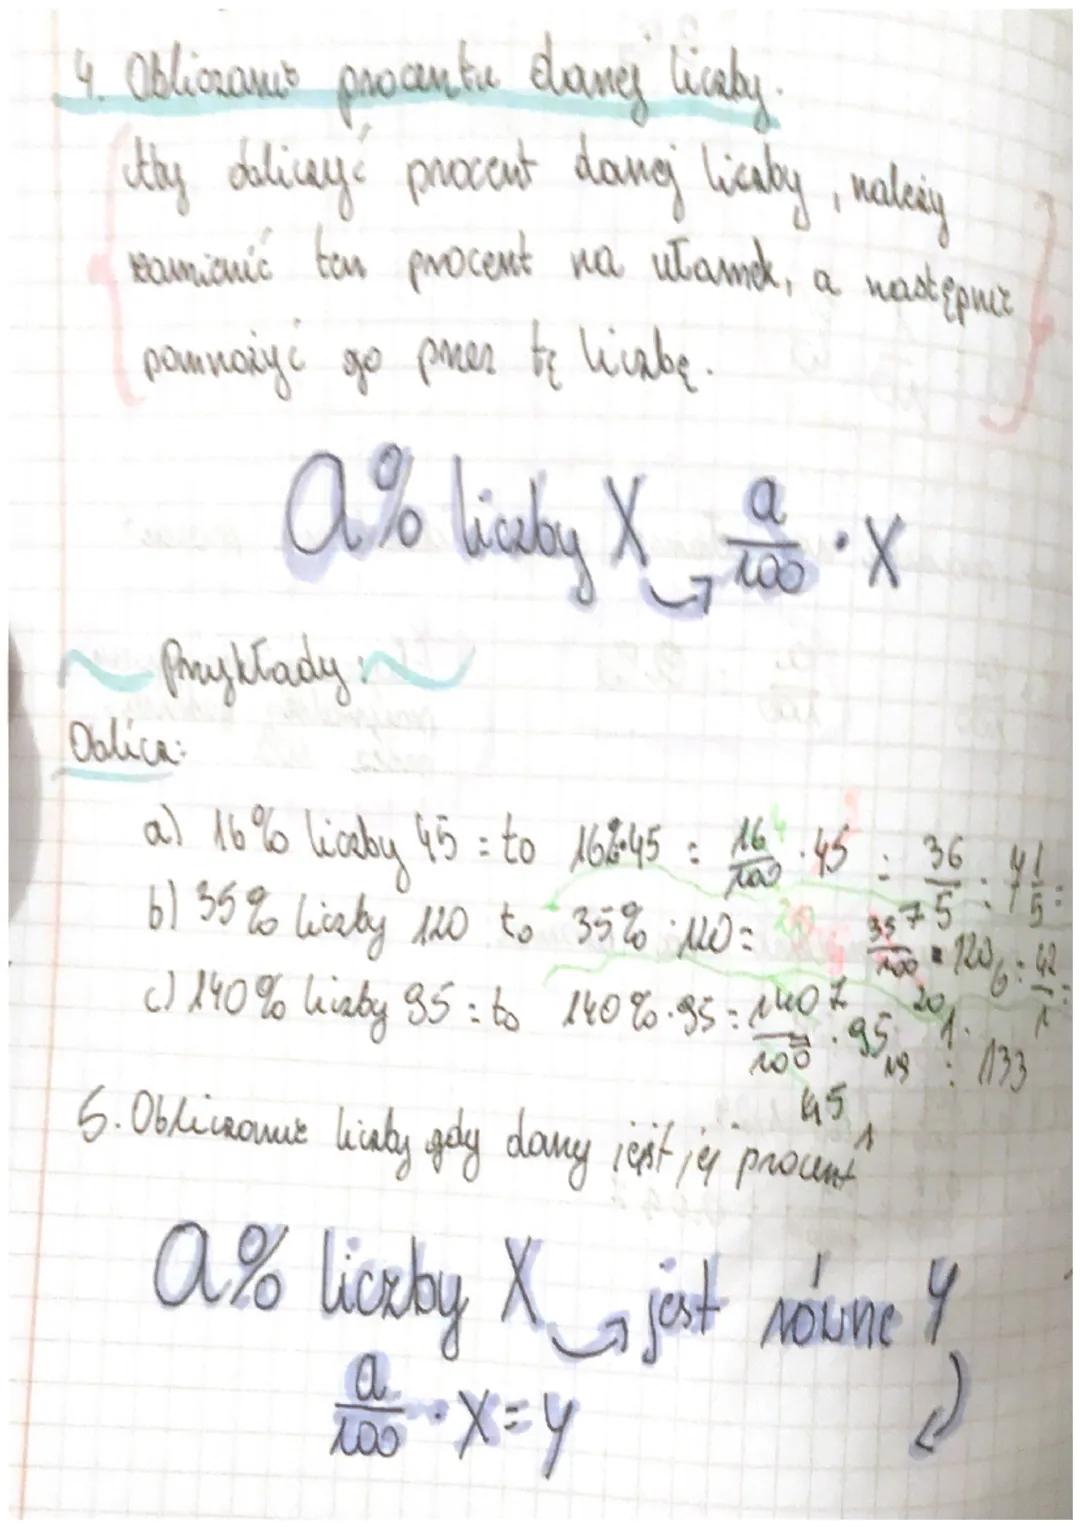 4. Obliczanie procentu danej liczby.
Aby obliczyć procent danej liczby, należy
zamienić ten procent na ułamek, a następnie
pomnożyć go przez tę liczbę.
a% liczby X → a/100 · X
Przykłady:
Oblicz:
a) 16% liczby 45 = to 16% · 45 = 16/100 · 45 = 36/5 = 7 1/5
b) 35% liczby 120 to 35% · 120 = 35/100 · 120 = 42/1 =
c) 140% liczby 95 = to 140% · 95 = 140/100 · 95 = 133
5. Obliczanie liczby gdy dany jest jej procent
a% liczby X → jest równe y
a/100 · X = y